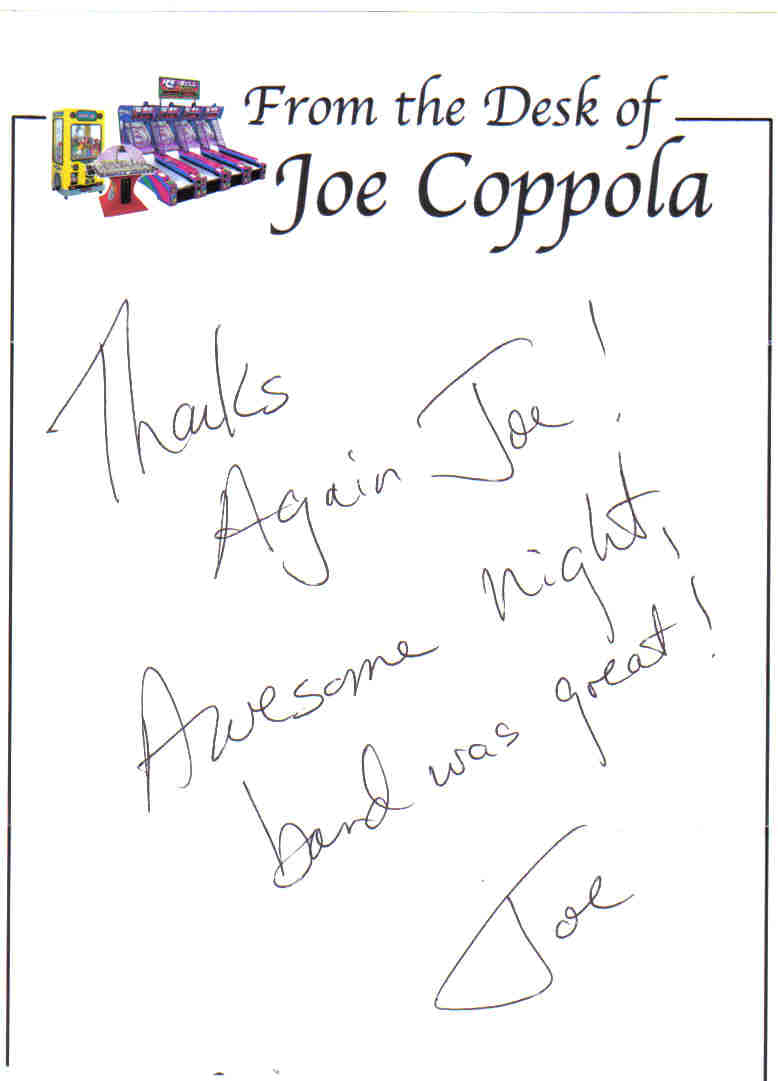 From the Desk of
Joe Coppola
Thanks
Again Joe!
Awesome night,
band was great!
Joe